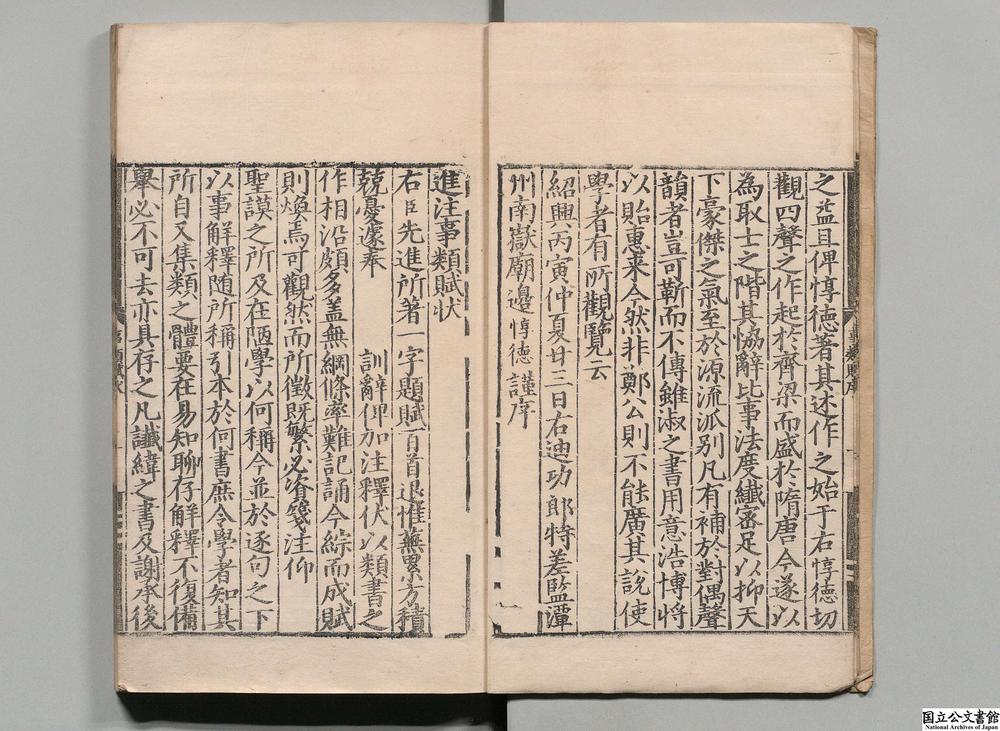 之益且俾惇德著其述作之始于右惇德切
觀四聲之作起於齊梁而盛於隋唐今遂以
為取士之階其協辭比事法度纖密足以抑天
下豪傑之氣至於源流派别凡有補於對偶聲
韻者豈可靳而不傳雖淑之書用意浩博將
以貽惠來今然非鄭公則不能廣其說使
學者有所觀覽云
紹興丙寅仲夏廿三日右迪功郎特差監潭
州南嶽廟邊惇德謹序
進注事類賦状
右臣先進所著一字題賦百首退惟蕪累方積
兢憂遽奉
訓辭俾加注釋伏以類書之
作相沿頗多盖無綱條率難記誦今綜而成賦
則煥焉可觀然而所徵既繁必資箋注仰
聖謨之所及在陋學以何稱今並於逐句之下
以事解釋随所稱引本於何書庶令學者知其
所自又集類之體要在易知聊存解釋不復備
舉必不可去亦具存之凡讖緯之書及謝承後
国立公文書館
National Archives of Japan